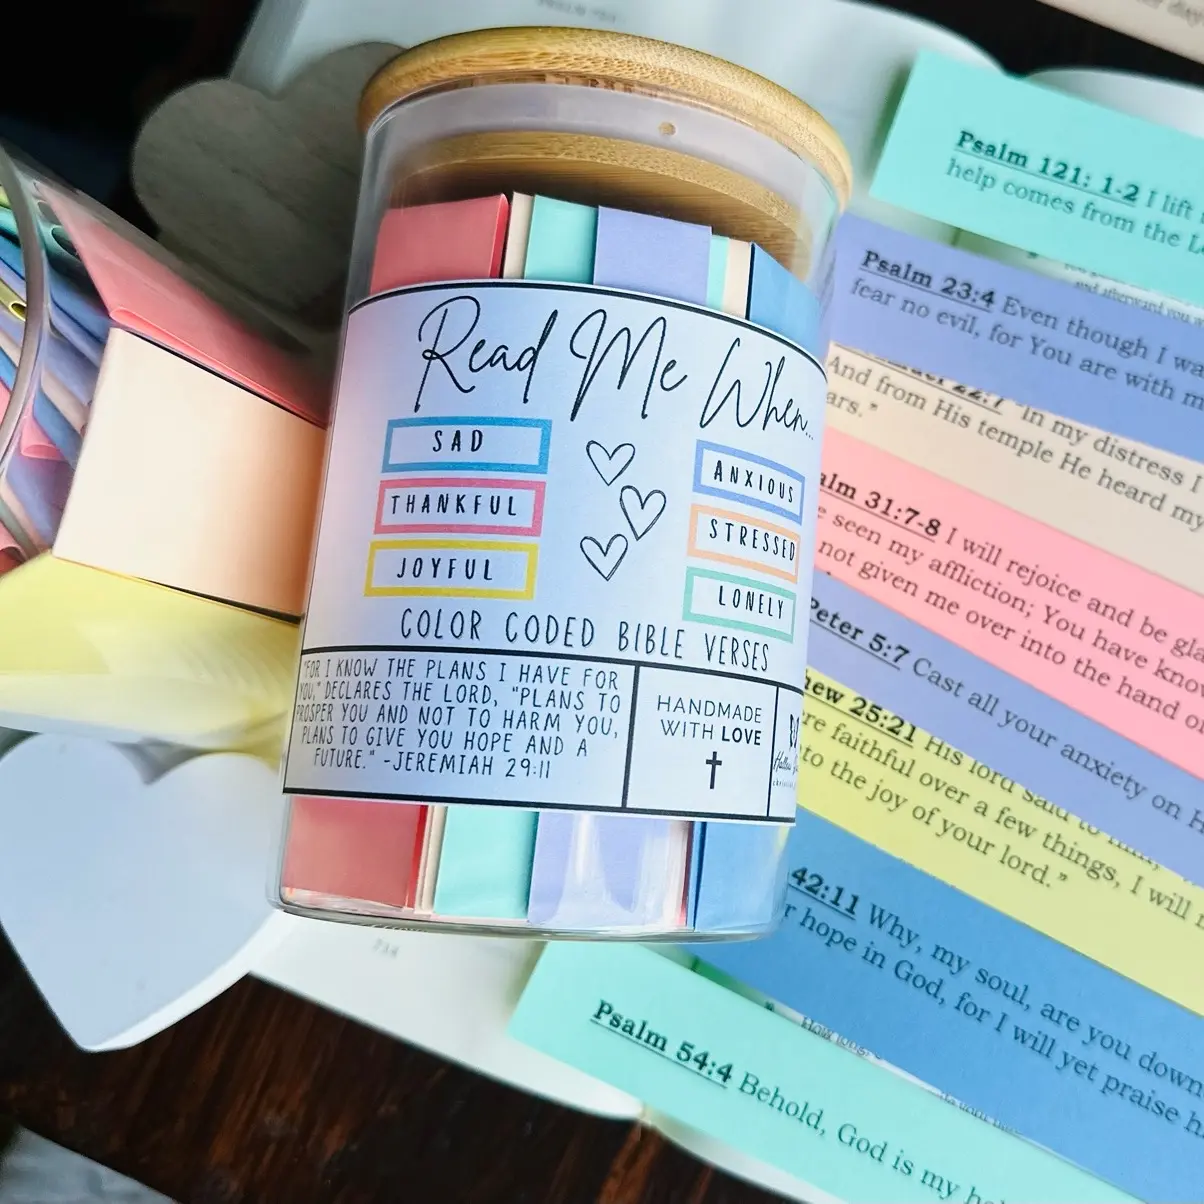 Read Me When...
SAD
THANKFUL
JOYFUL
ANXIOUS
STRESSED
LONELY
COLOR CODED BIBLE VERSES
"FOR I KNOW THE PLANS I HAVE FOR
YOU," DECLARES THE LORD, "PLANS TO
PROSPER YOU AND NOT TO HARM YOU,
PLANS TO GIVE YOU HOPE AND A
FUTURE." -JEREMIAH 29:11
HANDMADE
WITH LOVE
Psalm 121: 1-2 I lift
help comes from the
and afterward you
Psalm 23:4 Even though I
fear no evil, for You are with
22:7 "In my distress I
And from His temple He heard my
ars."
alm 31:7-8 I will rejoice and be
seen my affliction; You have
not given me over into the hand
Peter 5:7 Cast all your anxiety on
hew 25:21 His lord said to him,
re faithful over a few things, I will
to the joy of your lord."
42:11 Why, my soul, are you down
r hope in God, for I will yet praise
How long,
Psalm 54:4 Behold, God is my